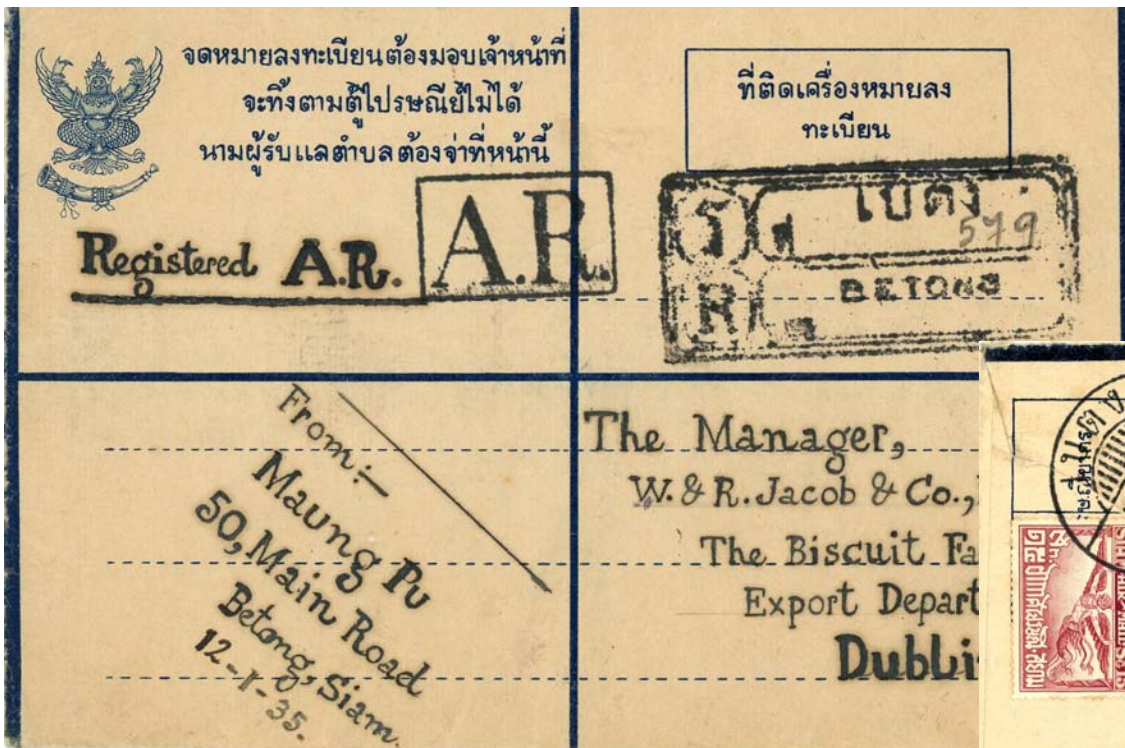 จดหมายลงทะเบียนต้องมอบเจ้าหน้าที่
จะทิ้งตามตู้ไปรษณีย์ไม่ได้
นามผู้รับแลตำบลต้องจ่าที่หน้านี้
ที่ติดเครื่องหมายลง
ทะเบียน
Registered A.R.
A.R.
ร
เบตง
579
R
BETONG
From:-
Maung Pu
50, Main Road
Betong, Siam.
12-1-35.
The Manager,
W. & R. Jacob & Co.,
The Biscuit Fa
Export Depart
Dubli